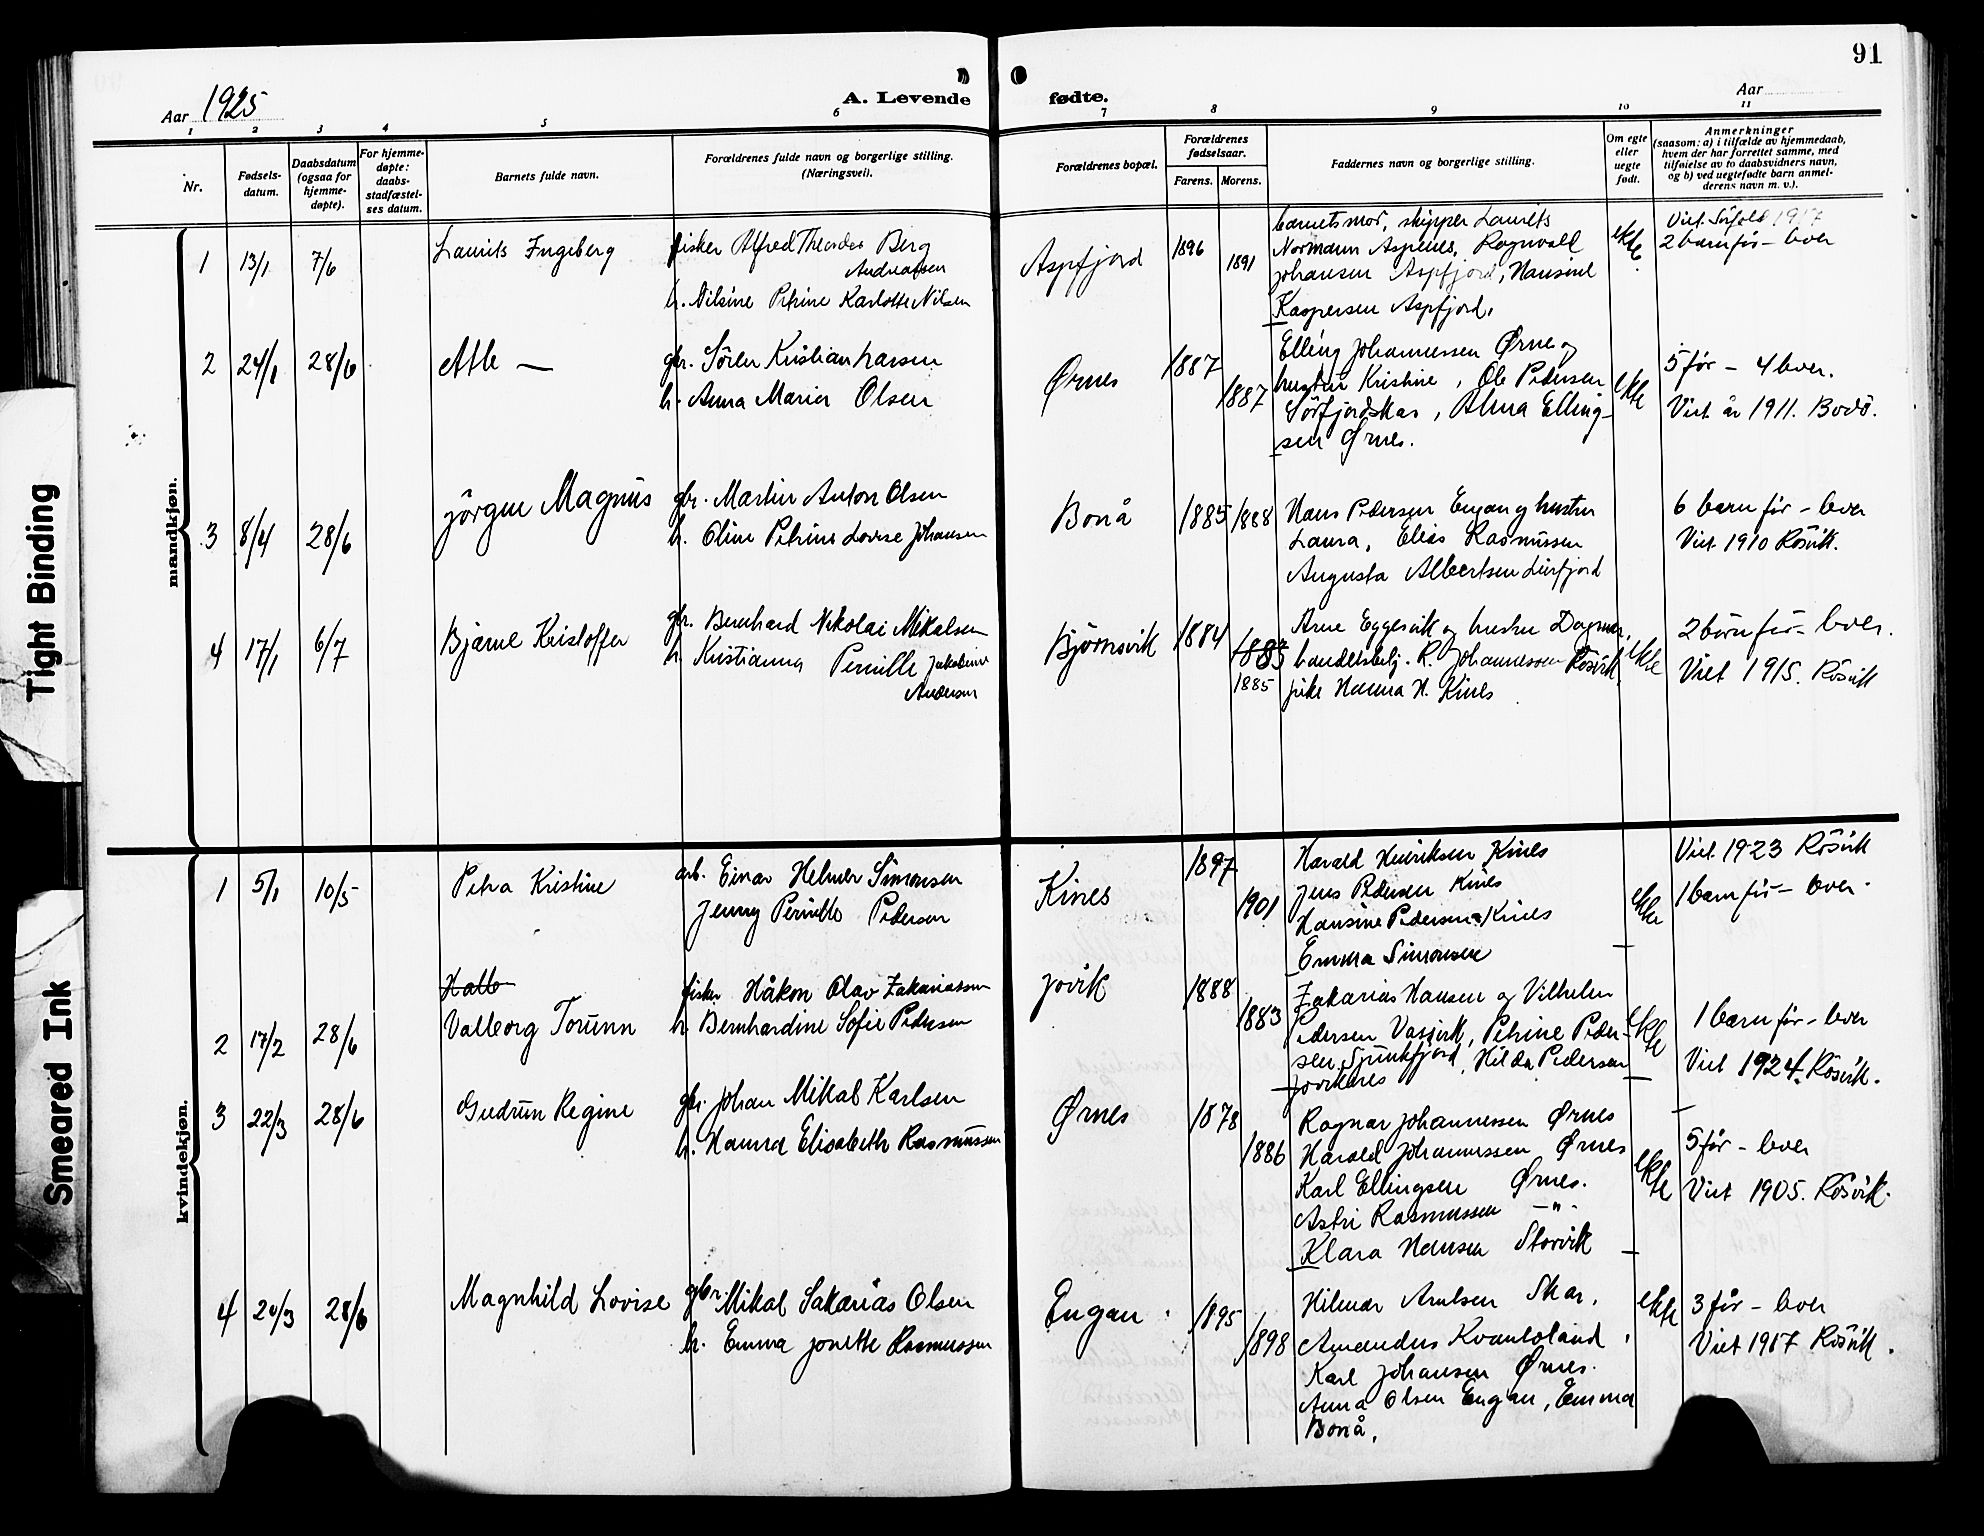 91
Aar 1925
A. Levende fødte.
Aar
1 2 3 4 5 6 7 8 9 10 11
Nr.
Fødsels-
datum.
Daabsdatum
(ogsaa for
hjemme-
døpte).
For hjemme-
døpte:
daabs-
stadfæstel-
ses datum.
Barnets fulde navn.
Forældrenes fulde navn og borgerlige stilling.
(Næringsvei).
Forældrenes bopæl.
Forældrenes
fødselsaar.
Farens. Morens.
Faddernes navn og borgerlige stilling.
Om egte
eller
uegte
født.
Anmerkninger
(saasom: a) i tilfælde av hjemmedaab,
hvem der har forrettet samme, med
tilføielse av to daabsvidners navn,
og b) ved uegtefødte barn anmel-
derens navn m. v.).
mandkjøn.
1 13/1 7/6
Laurits Ingeberg
fisker Alfred Theodor Berg
Andreassen
h. Nilsine Petrine Karlotte Nilsen
Aspfjord
1896
1891
barnets mor, skipper Laurits
Normann Aspenes, Ragnvald
Johansen Aspfjord, Hansine
Kaspersen Aspfjord.
ekte
Viet Sørfold 1917
2 barn før - lever
2 24/1 28/6
Atle —
gbr. Sören Kristian Larsen
h. Anna Maria Olsen
Ørnes
1887
1887
Elling Johannessen Ørnes og
hustru Kristine, Ole Pedersen
Sörfjordskar, Alma Elling-
sen Ørnes.
ekte
5 før - 4 lever.
Viet år 1911. Bodö.
3 8/4 28/6
Jörgen Magnus
gbr. Martin Anton Olsen
h. Oline Petrine Lovise Johansen
Bonå
1885 1888
Hans Pedersen Engan og hustru
Laura, Elias Rasmussen
Augusta Albertsen Leirfjord
6 barn før - lever
Viet 1910 Rösvik.
4 17/1 6/7
Bjarne Kristoffer
gbr. Bernhard Nikolai Mikalsen
h. Kristianna Pernille Jakobine
Andersen
Bjørnsvik
1884
1883
1885
Arne Eggesvik og hustru Dagmar,
handelsbetj. R. Johannessen Rösvik,
pike Hanna H. Kines
ekte
2 börn før - lever.
Viet 1915. Rösvik
kvindekjøn.
1 5/1 10/5
Petra Kristine
arb. Einar Helmer Simonsen
Jenny Pernille Pedersen
Kines
1897
1901
Harald Henriksen Kines
Jens Pedersen Kines
Hansine Pedersen Kines
Emma Simonsen
ekte
Viet 1923 Rösvik
1 barn før - lever.
2 17/2 28/6
Valborg Torunn
fisker Håkon Olav Zakariassen
h. Bernhardine Sofie Pedersen
Jovik
1888
1883
Zakarias Hansen og Vilhelm
Pedersen Vasvik, Petrine Peder-
sen Sjunkfjord, Hilda Pedersen
Joviknes
ekte
1 barn før - lever
Viet 1924. Rösvik.
3 22/3 28/6
Gudrun Regine
gbr. Johan Mikal Karlsen
h. Hanna Elisabeth Rasmussen
Ørnes
1878
1886
Ragnar Johannessen Ørnes
Harald Johannessen Ørnes
Karl Ellingsen Ørnes.
Astri Rasmussen —"—
Klara Hansen Storvik
ekte
5 før - lever
Viet 1905. Rösvik.
4 20/3 28/6
Magnhild Lovise
gbr. Mikal Sakarias Olsen
h. Emma Jonette Rasmussen
Engan
1895
1898
Hilmar Arntsen Skar,
Amandus Kvanteland,
Karl Johansen Ørnes.
Anna Olsen Engan, Emma
Bonå.
ekte
3 før - lever
Viet 1917 Rösvik.
Tight Binding
Smeared Ink